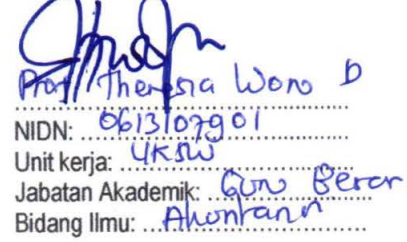 Prof Theresia Woro D
NIDN: 0613107901
Unit kerja: UKSW
Jabatan Akademik: Guru Besar
Bidang Ilmu: Akuntansi